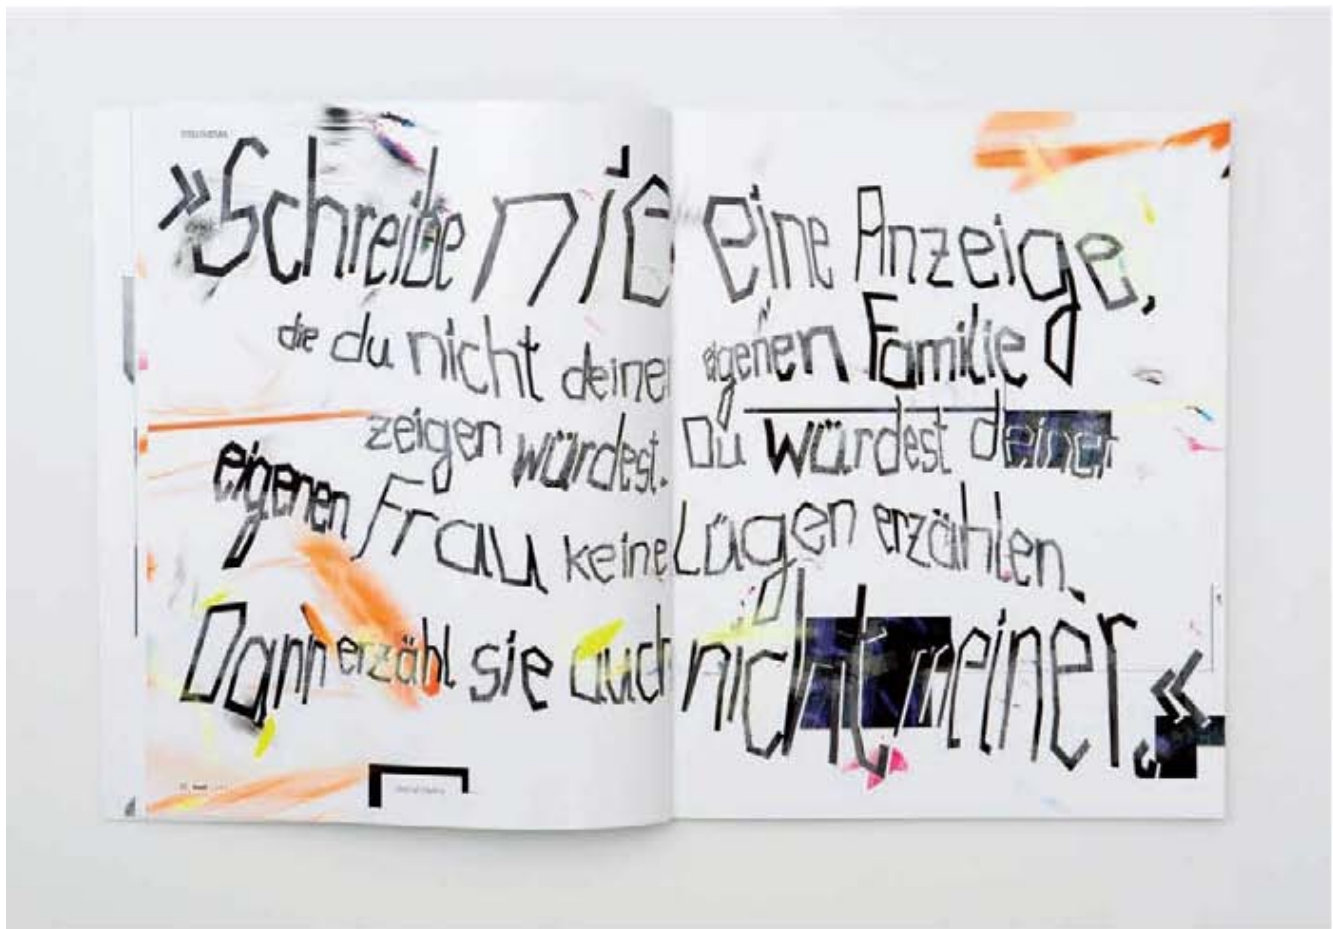 »Schreibe nie eine Anzeige,
die du nicht deiner eigenen Familie
zeigen würdest. Du würdest deiner
eigenen Frau keine Lügen erzählen.
Dann erzähl sie auch nicht meiner.«